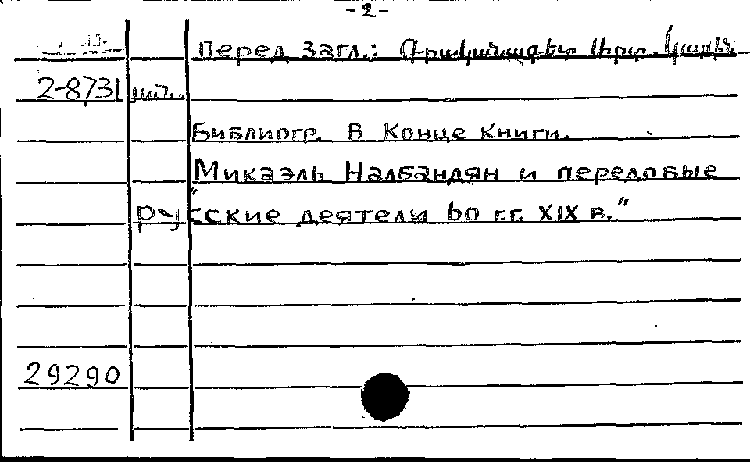 -2-
Перед загл.: Գրականագետ
2-8731
Библиогр. в конце книги.
"Микаэль Налбандян и передовые
русские деятели 60 гг. XIX в."
29290